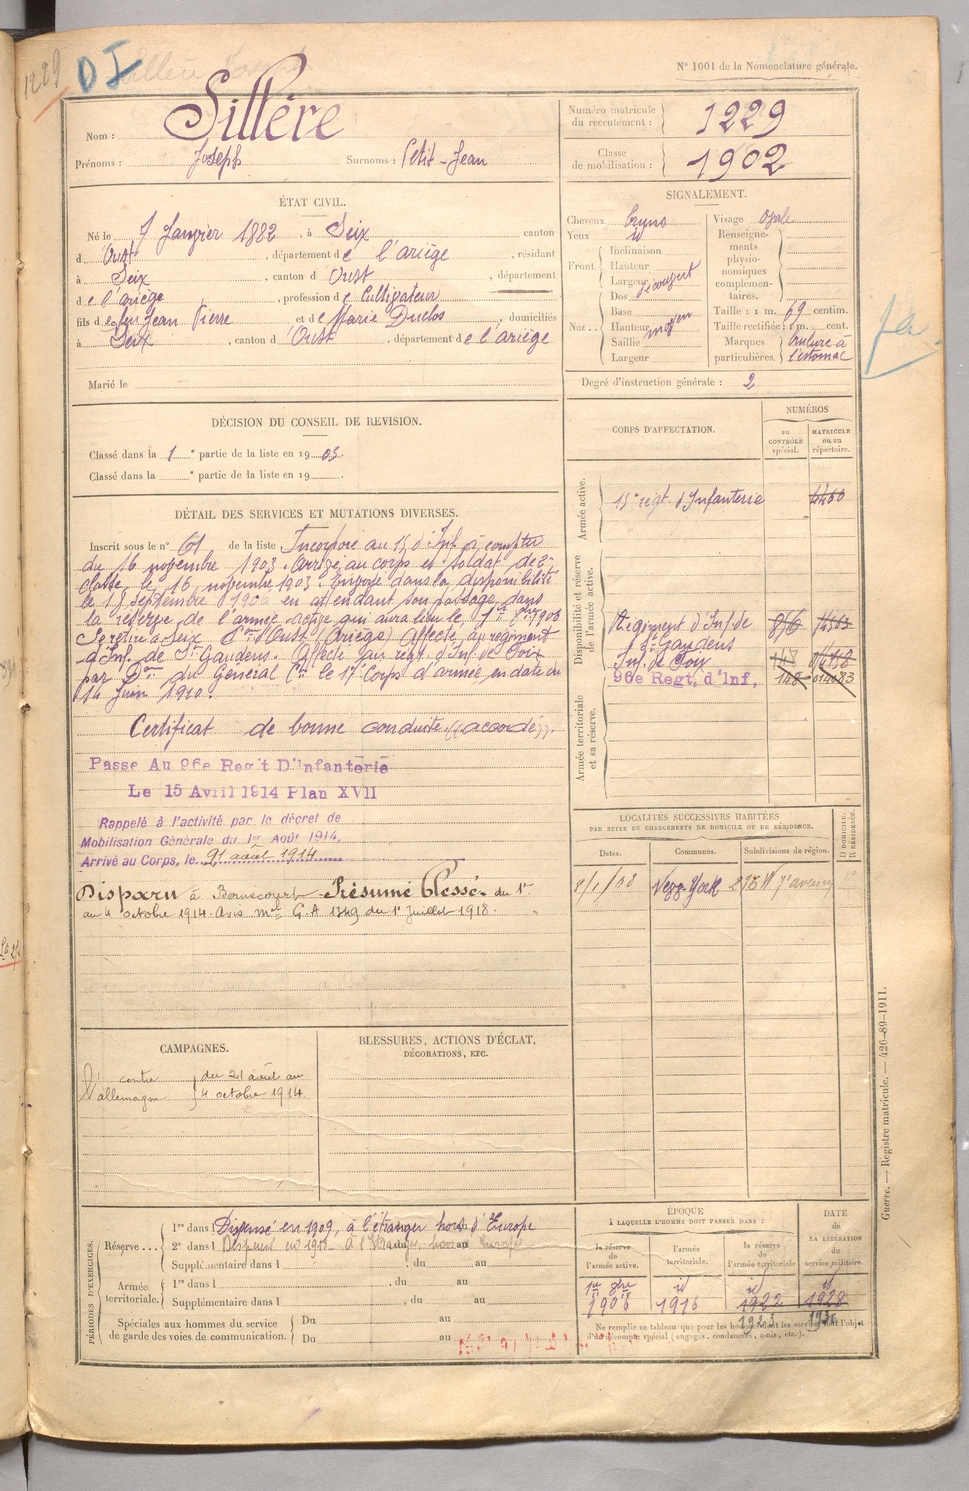 1229
DI
N° 1001 de la Nomenclature générale.
Nom : Sillère
Prénoms : Joseph Surnoms : Petit-Jean
Numéro matricule du recrutement : 1229
Classe de mobilisation : 1902
ÉTAT CIVIL.
Né le 7 Janvier 1882, à Seix canton
d'Oust, département de l'ariège, résidant
à Seix, canton d'Oust, département
de l'ariège, profession de Cultivateur
fils de feu Jean Pierre et de Marie Duclos, domiciliés
à Seix, canton d'Oust, département de l'ariège
Marié le
SIGNALEMENT.
Cheveux bruns
Yeux id
Front Inclinaison
Hauteur
Largeur découvert
Nez Dos
Base
Hauteur moyen
Saillie
Largeur
Visage ovale
Renseignements physionomiques complémentaires.
Taille : 1 m. 69 centim.
Taille rectifiée : 1 m. cent.
Marques particulières. brulure à l'estomac
Degré d'instruction générale : 2
DÉCISION DU CONSEIL DE REVISION.
Classé dans la 1e partie de la liste en 1903.
Classé dans la e partie de la liste en 19 .
CORPS D'AFFECTATION.
NUMÉROS
au CONTRÔLE spécial.
MATRICULE ou au répertoire.
Armée active.
15e régt. d'Infanterie
Disponibilité et réserve de l'armée active.
Régiment d'Inf. de St Gaudens
Inf. de Foix
96e Regt. d'Inf.
148
Armée territoriale et sa réserve.
DÉTAIL DES SERVICES ET MUTATIONS DIVERSES.
Inscrit sous le n° 61 de la liste Incorporé au 15 d'Inf. à compter
du 16 novembre 1903. Arrivé au corps et soldat de 2e
classe le 16 novembre 1903. Envoyé dans la disponibilité
le 18 septembre en attendant son passage dans
la réserve de l'armée active qui aura lieu le 1er 8bre 1906
Se retire à Seix Con d'Oust (Ariège) Affecté au régiment
d'Inf. de St Gaudens. Affecté au régt d'Inf. de Foix
par Don du Général Ct le 17e Corps d'armée en date du
14 Juin 1910.
Certificat de bonne conduite "accordé".
Passe Au 96e Regt D'Infanterie
Le 15 Avril 1914 Plan XVII
Rappelé à l'activité par le décret de
Mobilisation Générale du 1er Août 1914,
Arrivé au Corps, le 21 août 1914
Disparu à Bernécourt Présumé blessé du 1er
au 4 octobre 1914. Avis mel G.A 1349 du 1er Juillet 1918.
LOCALITÉS SUCCESSIVES HABITÉES
PAR SUITE DE CHANGEMENTS DE DOMICILE OU DE RÉSIDENCE.
Dates. Communes. Subdivisions de région. D DOMICILE. R RÉSIDENCE.
2/1/08 New-York 7e avenue
CAMPAGNES.
contre l'allemagne du 21 août au 4 octobre 1914
BLESSURES, ACTIONS D'ÉCLAT,
DÉCORATIONS, ETC.
PÉRIODES D'EXERCICES.
Réserve... 1re dans l Dispensé en 1909, à l'étranger hors d'Europe
2e dans l
Supplémentaire dans l , du au
Armée territoriale. 1re dans l , du au
Supplémentaire dans l , du au
Spéciales aux hommes du service de garde des voies de communication. Du au
Du au
ÉPOQUE
À LAQUELLE L'HOMME DOIT PASSER DANS :
la réserve de l'armée active.
l'armée territoriale.
la réserve de l'armée territoriale
DATE de LA LIBÉRATION du service militaire.
1er 8bre 1906
id 1916
id 1922
id 1928
Guerre. — Registre matricule. — 426-89-1911.